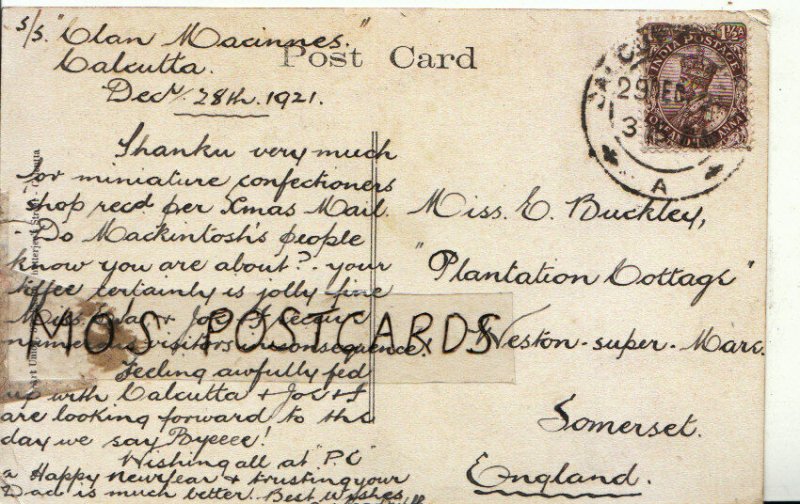 S/S. "Clan Macinnes."
Calcutta.
Decr/28th. 1921.
Post Card
INDIA POSTAGE
29 DEC
A
Thanku very much
for miniature confectioners
shop recd per Xmas Mail.
Do Mackintosh's people
know you are about?. your
toffee certainly is jolly fine
Miss & Joe & I
name visitors inconsequence.
Feeling awfully fed
up with Calcutta & Joe & I
are looking forward to the
day we say Byeeee!
Wishing all at "P.C"
a Happy New Year & trusting your
Dad is much better. Best wishes
Miss. E. Buckley,
"Plantation Cottage"
Weston-super-Mare.
Somerset.
England.
MOS POSTCARDS